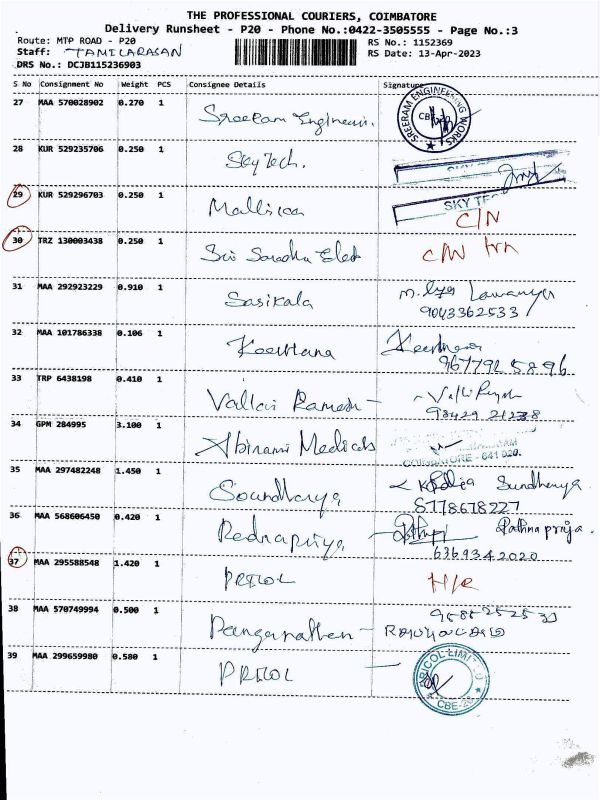 THE PROFESSIONAL COURIERS, COIMBATORE
Delivery Runsheet - P20 - Phone No.:0422-3505555 - Page No.:3
Route: MTP ROAD - P20 RS No.: 1152369
Staff: TAMILARASAN RS Date: 13-Apr-2023
DRS No.: DCJB115236903
S No Consignment No Weight PCS Consignee Details Signature
27 MAA 570028902 0.270 1 Sreeram Engineers. SREERAM ENGINEERING WORKS
28 KUR 529235706 0.250 1 SkyTech.
29 KUR 529296703 0.250 1 Mallisaa SKY TEC C/N
30 TRZ 130003438 0.250 1 Sri C/N
31 MAA 292923229 0.910 1 Sasikala Lawanya
9043362533
32 MAA 101786338 0.106 1 Keerthana Keerthana
9677925896
33 TRP 6438198 0.410 1 Vallai Ramesh -
98429 21238
34 GPM 284995 3.100 1 Abirami Medicals COIMBATORE - 641 020.
35 MAA 297482248 1.450 1 Soundharya Sundherya
8778678227
36 MAA 568606450 0.420 1 Pednapriya Pathmapriya.
6369342020
37 MAA 295588548 1.420 1 PRICOL
38 MAA 570749994 0.500 1 Ranganathan -
39 MAA 299659980 0.580 1 PRICOL - PRICOL LIMITED CBE-20